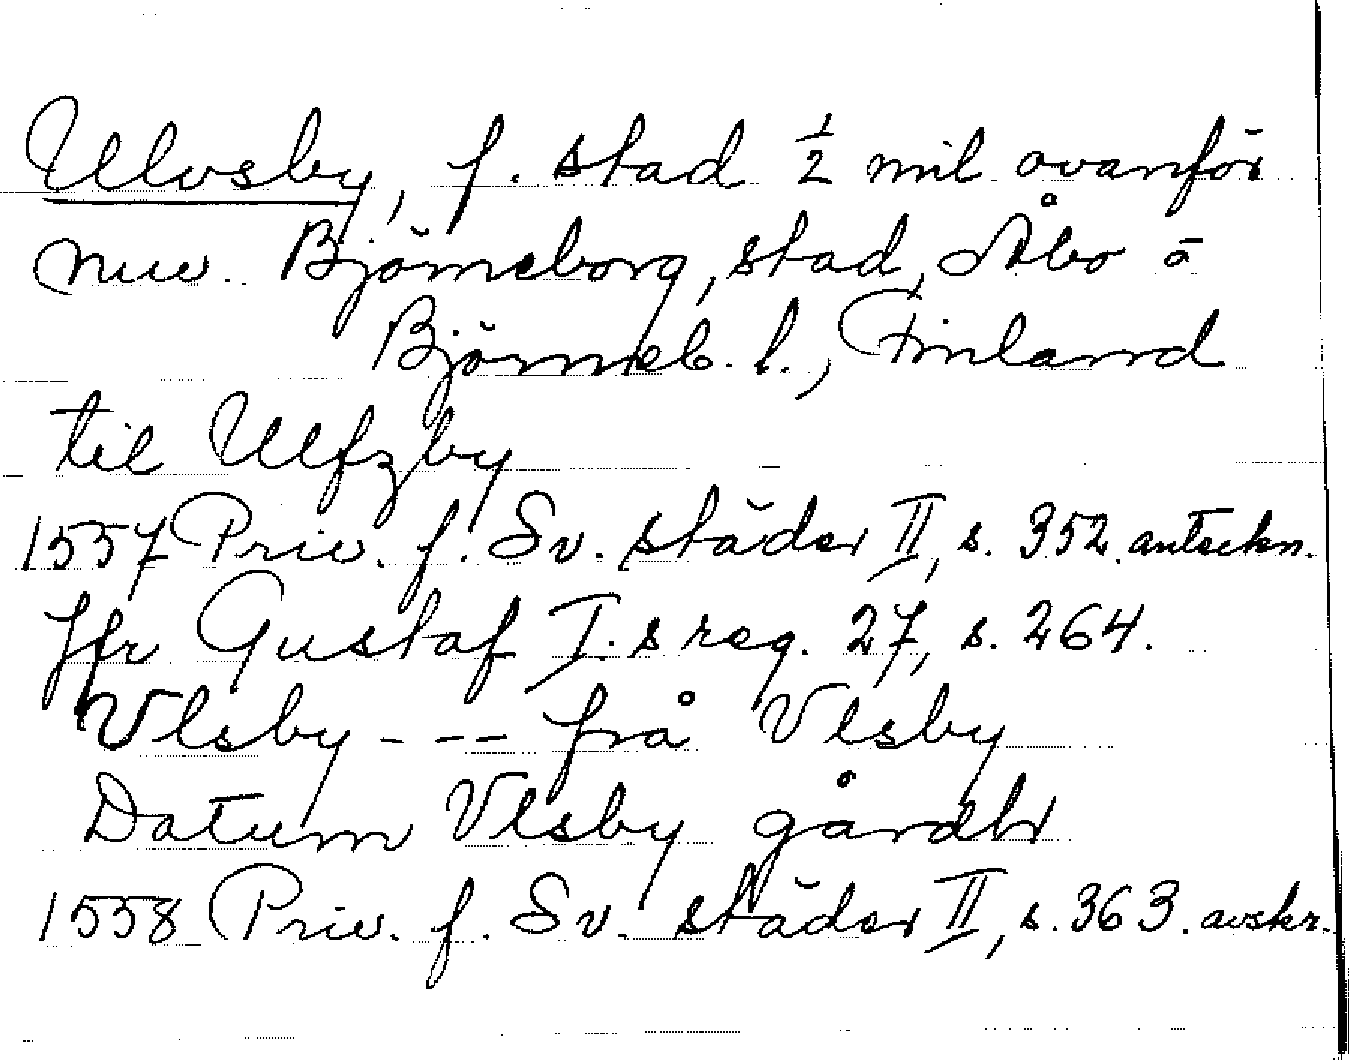 Ulvsby, f. stad ½ mil ovanför
nuv. Björneborg, stad, Åbo o
Björneb. l., Finland
til Ulfzby
1557 Priv. f. Sv. städer II, s. 352. anteckn.
Jfr Gustaf I.s reg. 27, s. 264.
Vlsby - - - frå Vlsby
Datum Vlsby gårdh
1558 Priv. f. Sv. städer II, s. 363. avskr.